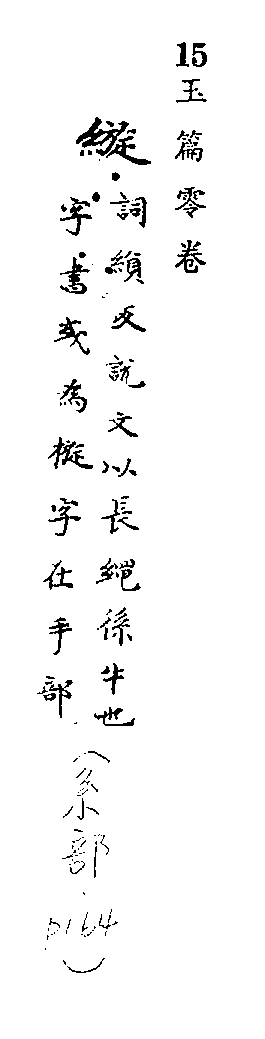 15玉篇零卷
縼
詞縜反說文以長繩係牛也
字書或為摐字在手部
(糸部.p164)